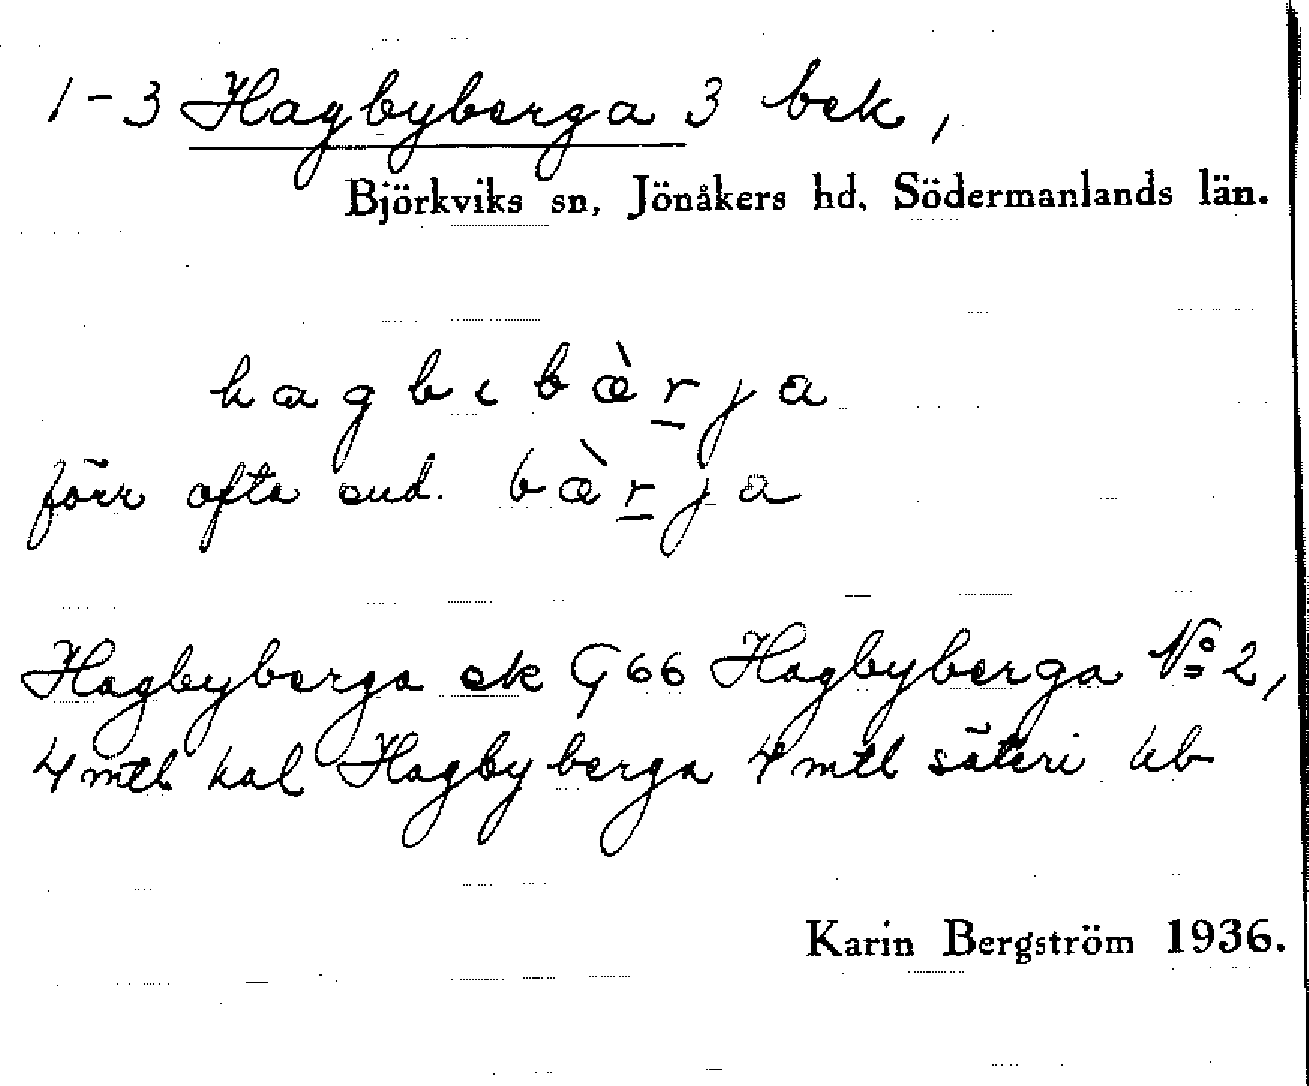 1-3 Hagbyberga 3 bek,
Björkviks sn, Jönåkers hd, Södermanlands län.
hagbɩbæ̀r̲ja
förr ofta end. bæ̀r̲ja
Hagbyberga ek G 66 Hagbyberga № 2,
4 mtl kal Hagbyberga 4 mtl säteri
Karin Bergström 1936.